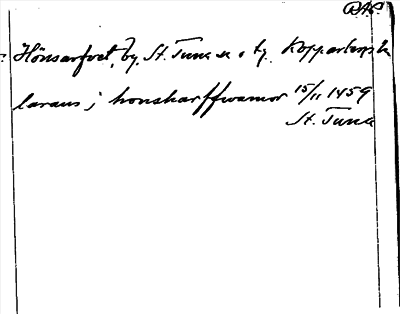 RAP
Hönsarfvet, by, St. Tuna sn o tg. Kopparbergs l.
laraus j honsharffwamor 15/11 1459
St. Tuna